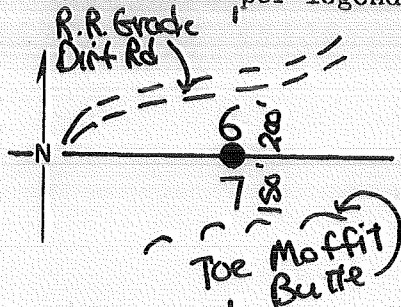 per legend
R.R. Grade
Dirt Rd
6
N
7
Toe Moffit
Butte